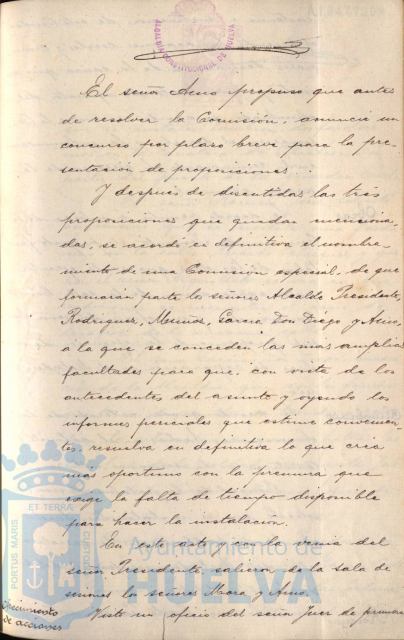 ALCALDIA CONSTITUCIONAL DE HUELVA
El señor Amo propuso que antes
de resolver la Comisión, anuncie un
concurso por plazo breve para la pre-
sentación de proposiciones.
Y después de discutidas las tres
proposiciones que quedan menciona-
das, se acordó en definitiva el nombra-
miento de una Comisión especial, de que
formarán parte los señores Alcalde Presidente,
Rodriguez, Muñoz, Garcia Don Diego y Amo,
a la que se conceden las más amplias
facultades para que, con vista de los
antecedentes del asunto y oyendo los
informes periciales que estime convenien-
tes, resuelva en definitiva lo que crea
más oportuno con la premura que
exige la falta de tiempo disponible
para hacer la instalación.
En este acto y con la venia del
señor Presidente salieron de la sala de
sesiones los señores Mora y Amo.
de acciones
Visto un oficio del señor Juez de prime
PORTUS MARIS ET TERRÆ CUSTODIA
Ayuntamiento de
HUELVA